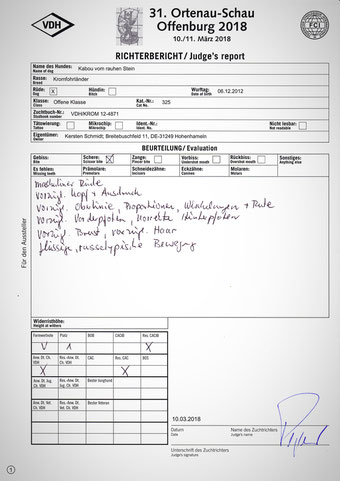 VDH
31. Ortenau-Schau
Offenburg 2018
10./11. März 2018
FCI
RICHTERBERICHT / Judge's report
Name des Hundes: Kabou vom rauhen Stein
Name of dog
Rasse: Kromfohrländer
Breed
Rüde: X Hündin: Wurftag: 06.12.2012
Dog Bitch Date of birth
Klasse: Offene Klasse Kat.-Nr.: 325
Class Cat No.
Zuchtbuch-Nr.: VDH/KROM 12-4871
Studbook number
Tätowierung: Mikrochip: Ident.-Nr.: Nicht lesbar:
Tattoo Microchip Ident. No. Not readable
Eigentümer: Kersten Schmidt, Breitebuschfeld 11, DE-31249 Hohenhameln
Owner
BEURTEILUNG / Evaluation
Gebiss: Schere: X Zange: Vorbiss: Rückbiss: Sonstiges:
Bite Scissor bite Pincer bite Undershot mouth Overshot mouth Anything else
Es fehlen: Prämolare: Schneidezähne: Eckzähne: Molaren:
Missing teeth Premolars Incisors Canines Molars
maskuliner Rüde
vorzügl. Kopf + Ausdruck
vorzügl. Oberlinie, Proportionen, Winkelungen + Rute
vorzügl. Vorderpfoten, korrekte Hinterpfoten
vorzügl. Brust, vorzügl. Haar
flüssige, rassetypische Bewegung
Für den Aussteller
Widerristhöhe:
Height at withers
Formwertnote Platz BOB CACIB Res. CACIB
V 1 X
Anw. Dt. Ch. VDH Res.-Anw. Dt. Ch. VDH CAC Res. CAC BOS
X X
Anw. Dt. Jug. Ch. VDH Res.-Anw. Dt. Jug. Ch. VDH Bester Junghund
Anw. Dt. Vet. Ch. VDH Res.-Anw. Dt. Vet. Ch. VDH Bester Veteran
10.03.2018
Datum Name des Zuchtrichters
Date Judge's name
Unterschrift des Zuchtrichters
Judge's signature
1